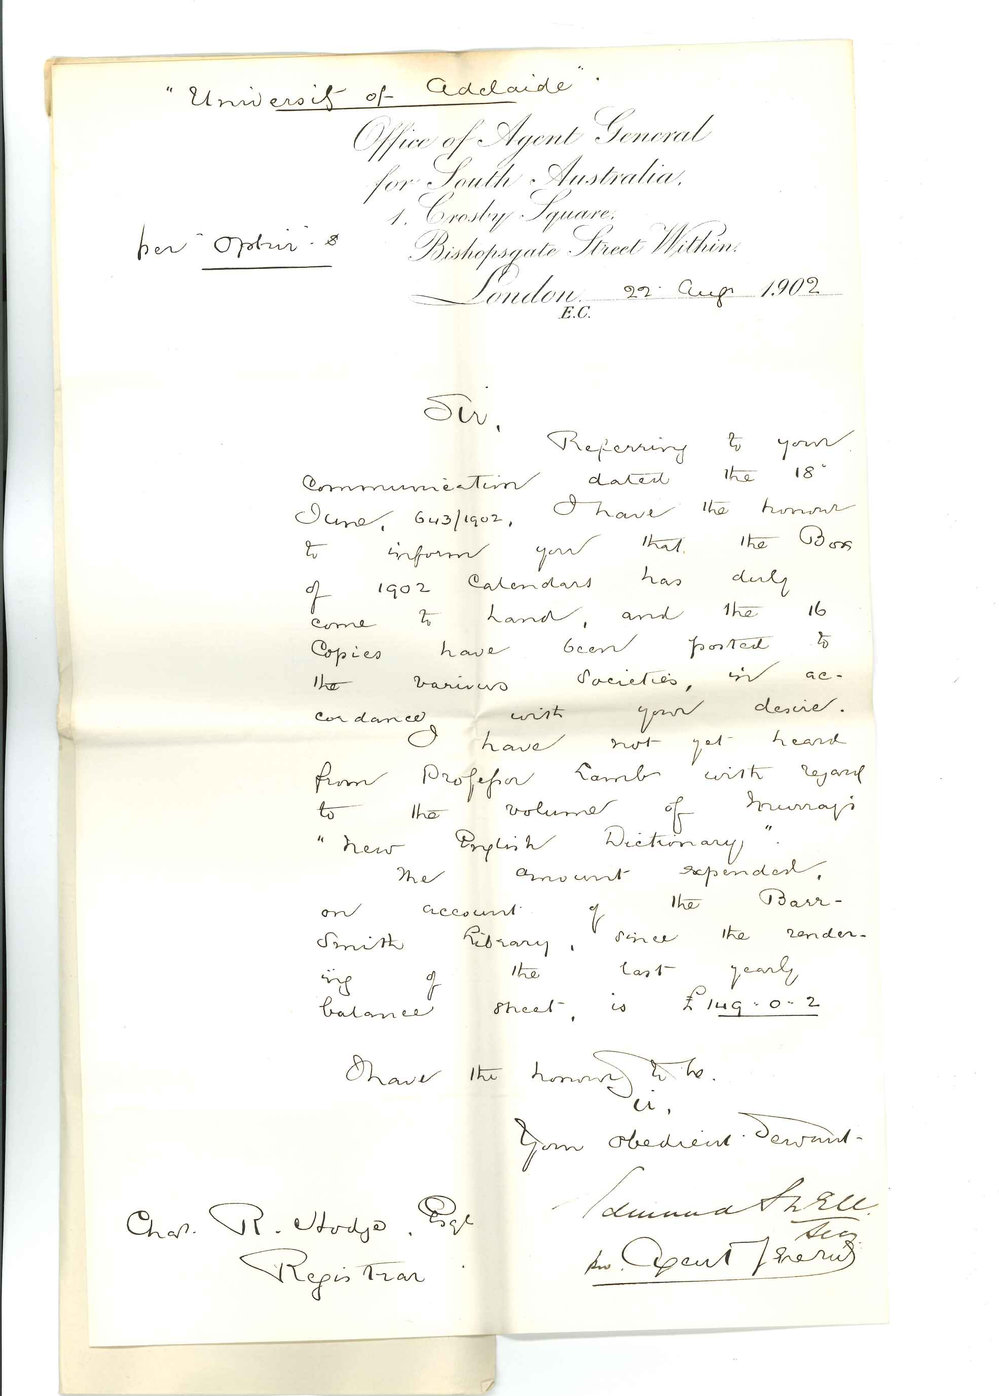 "University of Adelaide".
Office of Agent General
for South Australia,
1, Crosby Square,
per "Ophir" s
Bishopsgate Street Within.
London 22 Aug 1902
E.C.
Sir,
Referring to your
Communication dated the 18"
June, 643/1902, I have the honour
to inform you that the Box
of 1902 Calendars has duly
come to hand, and the 16
Copies have been posted to
the various Societies, in ac-
cordance with your desire.
I have not yet heard
from Professor Lamb with regard
to the volume of Murray's
"New English Dictionary".
The amount expended,
on account of the Barr-
Smith Library, since the render-
ing of the last yearly
balance sheet, is £149-0-2
I have the honour to be.
Sir,
Your obedient Servant
Edmund
pro. Agent General
Chas. R. Hodge, Esqr
Registrar